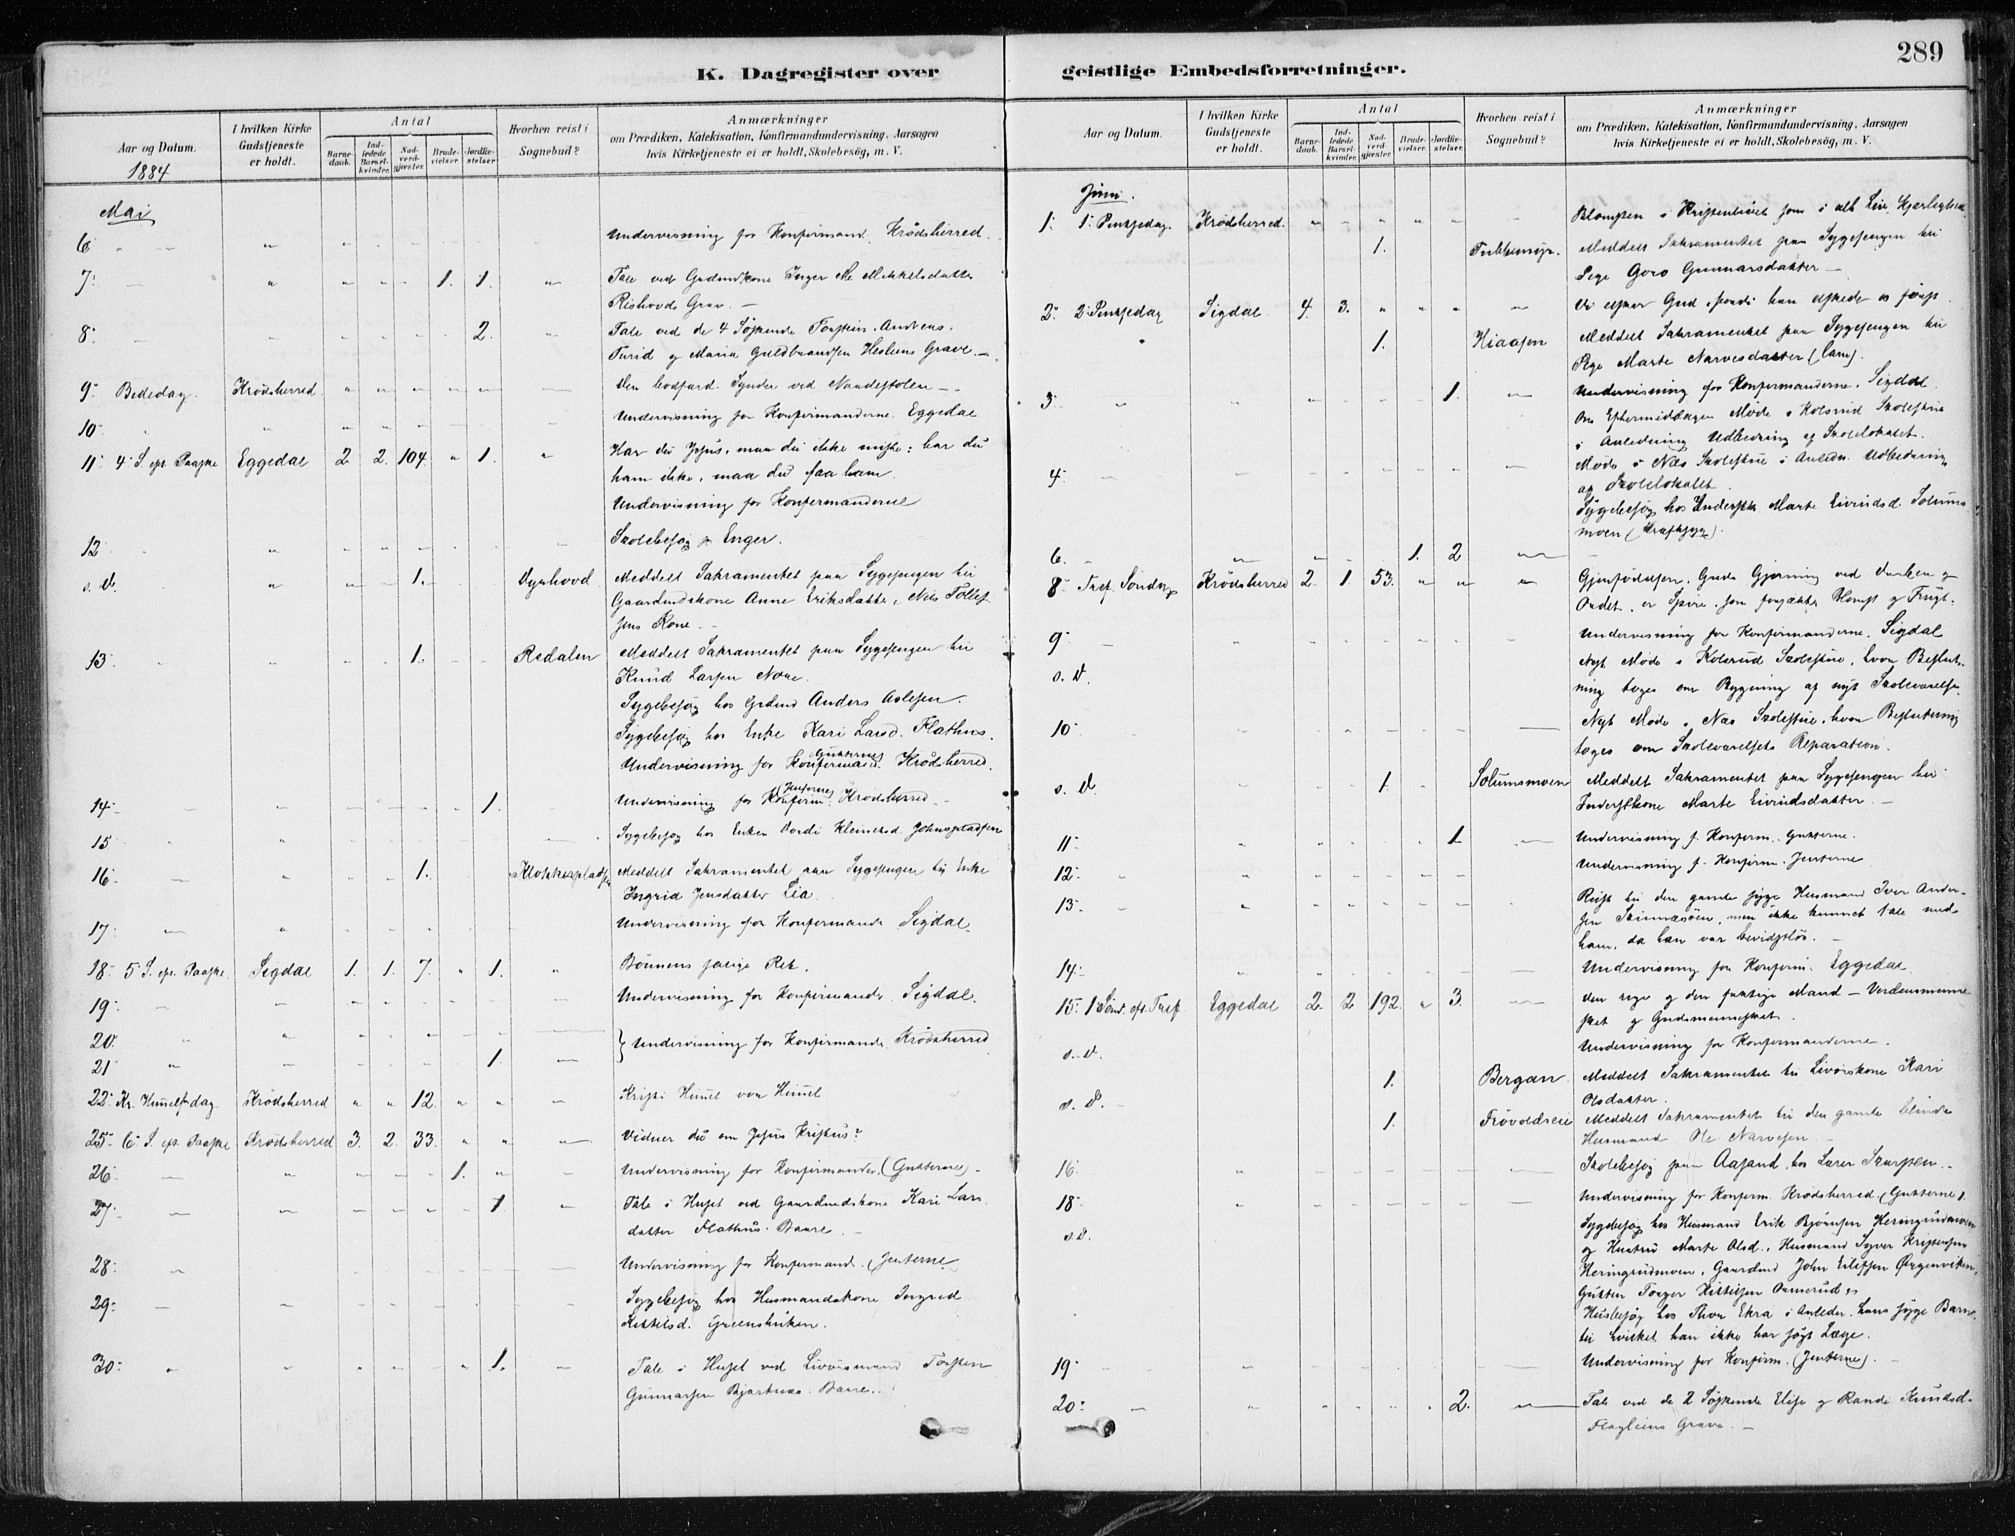 289
K. Dagregister over geistlige Embedsforretninger.
Aar og Datum.
I hvilken Kirke Gudstjeneste er holdt.
Antal
Barnedaab.
Indledede Barselkvinder.
Nadverdgjester.
Brudevielser.
Jordfæstelser
Hvorhen reist i Sognebud?
Anmærkninger
om Prædiken, Katekisation, Konfirmandundervisning, Aarsagen
hvis Kirketjeneste ei er holdt, Skolebesög, m. V.
1884
Mai
6 Undervisning for Konfirmand. Krødsherred.
7 1. 1. Tale ved Gaardmdskone Inger Mikkelsdatter
Rishovds Grav. —
8 2. Tale ved de 4 Søskende Torstein, Andreas,
Turid og Maria Guldbrandsen Grave. —
9 Bededag. Krødsherred Den bodfærd. Synder ved Naadestolen —
10 Undervisning for Konfirmanderne. Eggedal
11 4 S. eft. Paaske Eggedal 2 2. 104. 1. Har du Jesus, maa du ikke miste; har du
ham ikke, maa du faa ham.
Undervisning for Konfirmanderne
12 Skolebesøg p. Enger.
s. D. 1. Meddelt Sakramentet paa Sygesengen til
Gaardmdskone Anne Eriksdatter, Nils Tollef
sens Kone. —
13 1. Redalen Meddelt Sakramentet paa Sygesengen til
Knud Larsen
Sygebesøg hos Grdmd Anders Aslesen.
Sygebesøg hos Enke Kari Larsd. Flathus.
Undervisning for Konfirmand. (Gutterne) Krødsherred.
14 1. Undervisning for Konfirm. (Jenterne) Krødsherred —
15 Sygebesøg hos Enken
16 1. Klokkerpladsen Meddelt Sakramentet paa Sygesengen til Enke
Ingrid Jensdatter Lia.
17 Undervisning for Konfirmande Sigdal.
18 5 S. eft. Paaske Sigdal 1. 1. 7. 1. Bønnens
19 Undervisning for Konfirmande. Sigdal.
20
21 1. Undervisning for Konfirmande. Krødsherred
22 Kr. Himmelf.dag Krødsherred 12. Kristi Himmel vor Himmel
25 6 S. eft. Paaske Krødsherred 3. 2. 33. Vidner du om Jesus Kristus?
26 1. Undervisning for Konfirmander (Gutterne) —
27 1 Tale i Huset ved Gaardmdskone Kari Lars
datter Flathus. Baare. —
28 Undervisning for Konfirmand. (Jenterne)
29 Sygebesøg hos Husmandskone Ingrid
Kittilsd.
30 1. Tale i Huset ved Livørsmand Torsten
Gunnarsen Baare.
Aar og Datum.
I hvilken Kirke Gudstjeneste er holdt.
Antal
Barnedaab.
Indledede Barselkvinder.
Nadverdgjester.
Brudevielser.
Jordfæstelser.
Hvorhen reist i Sognebud?
Anmærkninger
om Prædiken, Katekisation, Konfirmandundervisning, Aarsagen
hvis Kirketjeneste ei er holdt, Skolebesög, m. V.
Juni.
1. 1. Pinsedag. Krødsherred. Blomsten i Kristenlivet som i alt Liv, Kjærligheden.
1. Meddelt Sakramentet paa Sygesengen til
Pige Goro Gunnarsdatter —
2. 2. Pinsedag Sigdal. 4. 3. Vi elsker Gud, fordi han elskede os først.
1. Kiaasen Meddelt Sakramentet paa Sygesengen til
Pige Marte Narvesdatter (lam).
3 1. Undervisning for Konfirmanderne. Sigdal.
Om Eftermiddagen Møde i Kolsrud Skolestue
i Anledning Udbedring af Skolelokalet.
4 Møde i Næs Skolestue i Anledn. Udbedring
af Skolelokalet.
Sygebesøg hos Marte Eivindsd. Solums
moen
6. 1. 2
8 Tref. Søndag Krødsherred 2. 1 53. Gjenfødelsen, Guds Gjerning ved Daaben og
Ordet, er Spire, som forjætter Blomst og Frugt.
9 Undervisning for Konfirmanderne. Sigdal
s. D. Nyt Møde i Kolsrud Skolestue, hvor Beslut-
ning toges om Bygning af nyt Skoleværelse.
10 Nyt Møde i Næs Skolestue, hvor Beslutning
toges om Skoleværelsets Reparation.
s. D. 1. Solumsmoen Meddelt Sakramentet paa Sygesengen til
Marte Eivindsdatter. —
11 1. Undervisning f. Konfirm. Gutterne.
12 Undervisning f. Konfirm. Jenterne
13 Reist til den gamle syge Husmand Iver Ander-
sen men ikke kunnet tale med
ham, da han var bevidstløs. —
14 Undervisning for Konfirm. Eggedal.
15 1 Sønd. eft. Tref. Eggedal 2. 2 192. 3. Den rige og den fattige Mand — Verdensmenne
sket og Gudsmennesket.
s. D. Undervisning for Konfirmanderne.
1. Bergan Meddelt Sakramentet til Livørskone Kari
Olsdatter.
s. D. 1. Meddelt Sakramentet til den gamle blinde
Husmand Ole Narvesen. —
16 Skolebesøg paa Aasand hos Lærer
18 Undervisning for Konfirm. Krødsherred. (Gutterne).
s. D. Sygebesøg hos Husmand Erik Bjørnsen Heringrudmoen
og Hustru Marte Olsd., Husmand Syver Kristensen
Heringrudmoen, Gaardmd John Ørgenviken,
Gutten Torger Kittilsen
Husbesøg hos Thor Ekra i Anledn. hans syge Barn,
til hvilket han ikke har søgt Læge.
19 Undervisning for Konfirm. (Jenterne). —
20 2. Tale ved de 2 Søskende Elise og Randi Knudsd.
Grave. —